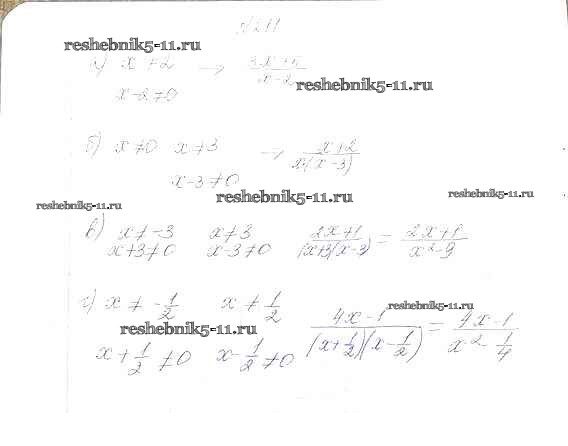 №211
reshebnik5-11.ru
а) x ≠ 2 → (3x+5)/(x-2)
reshebnik5-11.ru
x-2≠0
б) x≠0 x≠3 → (x+2)/(x·(x-3))
x-3≠0
reshebnik5-11.ru
reshebnik5-11.ru
reshebnik5-11.ru
в) x≠-3 x≠3 (2x+1)/((x+3)(x-3)) = (2x+1)/(x²-9)
x+3≠0 x-3≠0
г) x ≠ -1/2 x ≠ 1/2 (4x-1)/((x+1/2)(x-1/2)) = (4x-1)/(x²-1/4)
reshebnik5-11.ru
reshebnik5-11.ru
x+1/2≠0 x-1/2≠0